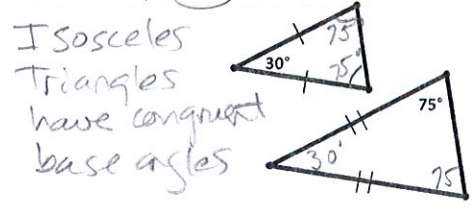 Isosceles
Triangles
have congruent
base angles
30°
75°
75°
75°
30°
75